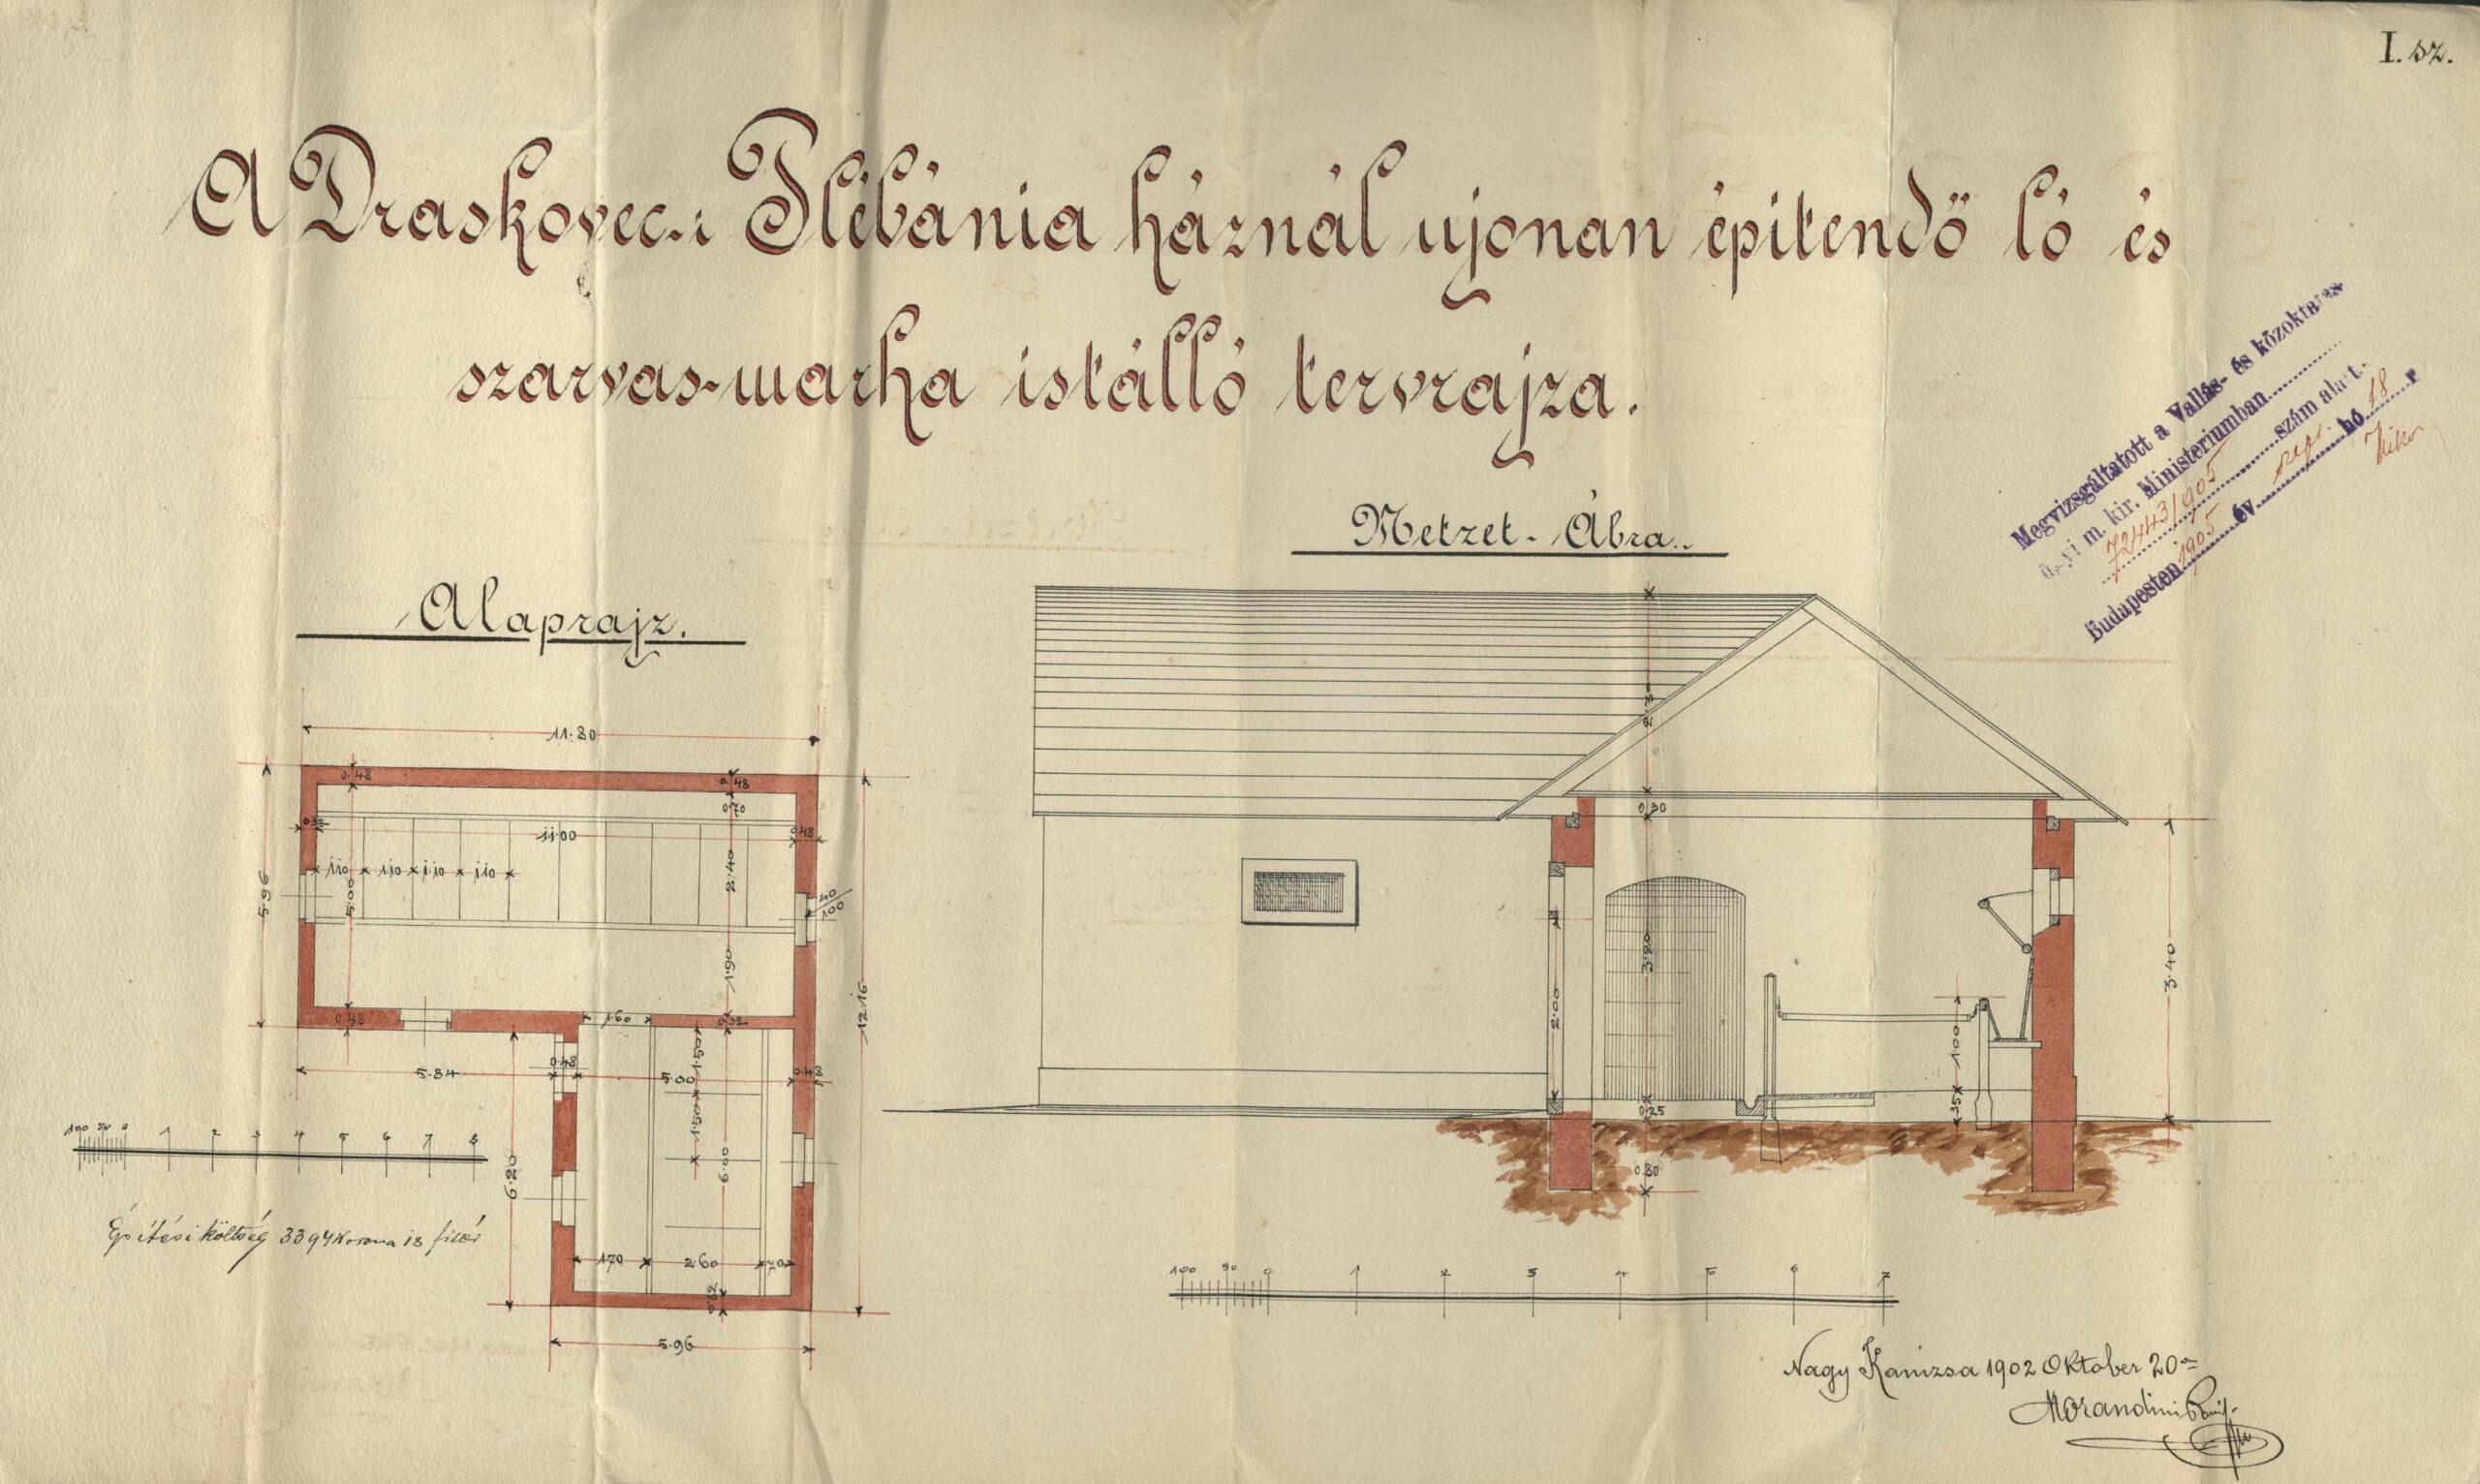 I. sz.
A Draskovec-i Plébánia háznál ujonan épitendő ló és
szarvas-marha istálló tervrajza.
Megvizsgáltatott a Vallás- és közoktatás
ügyi m. kir. Ministeriumban
72443/905 szám alatt.
Budapesten 1905 év szept. hó 18
Metzet-Ábra..
Alaprajz.
11.80
0.48
0.48
0.70
0.32
11.00
0.48
110 110 1.10 110
5.00
2.40
40/100
5.96
1.90
12.16
0.48
1.60
0.32
5.84
0.48
5.00
0.48
1.50
1.50
6.20
6.00
1.70
2.60
70
0.32
5.96
100 50 0 1 2 3 4 5 6 7 8
Épitési költség 3394 Korona 18 fillér
0.30
3.20
2.00
3.40
1.00
35
0.25
0.80
100 50 0 1 2 3 4 5 6 7
Nagy Kanizsa 1902 Oktober 20
Morandini